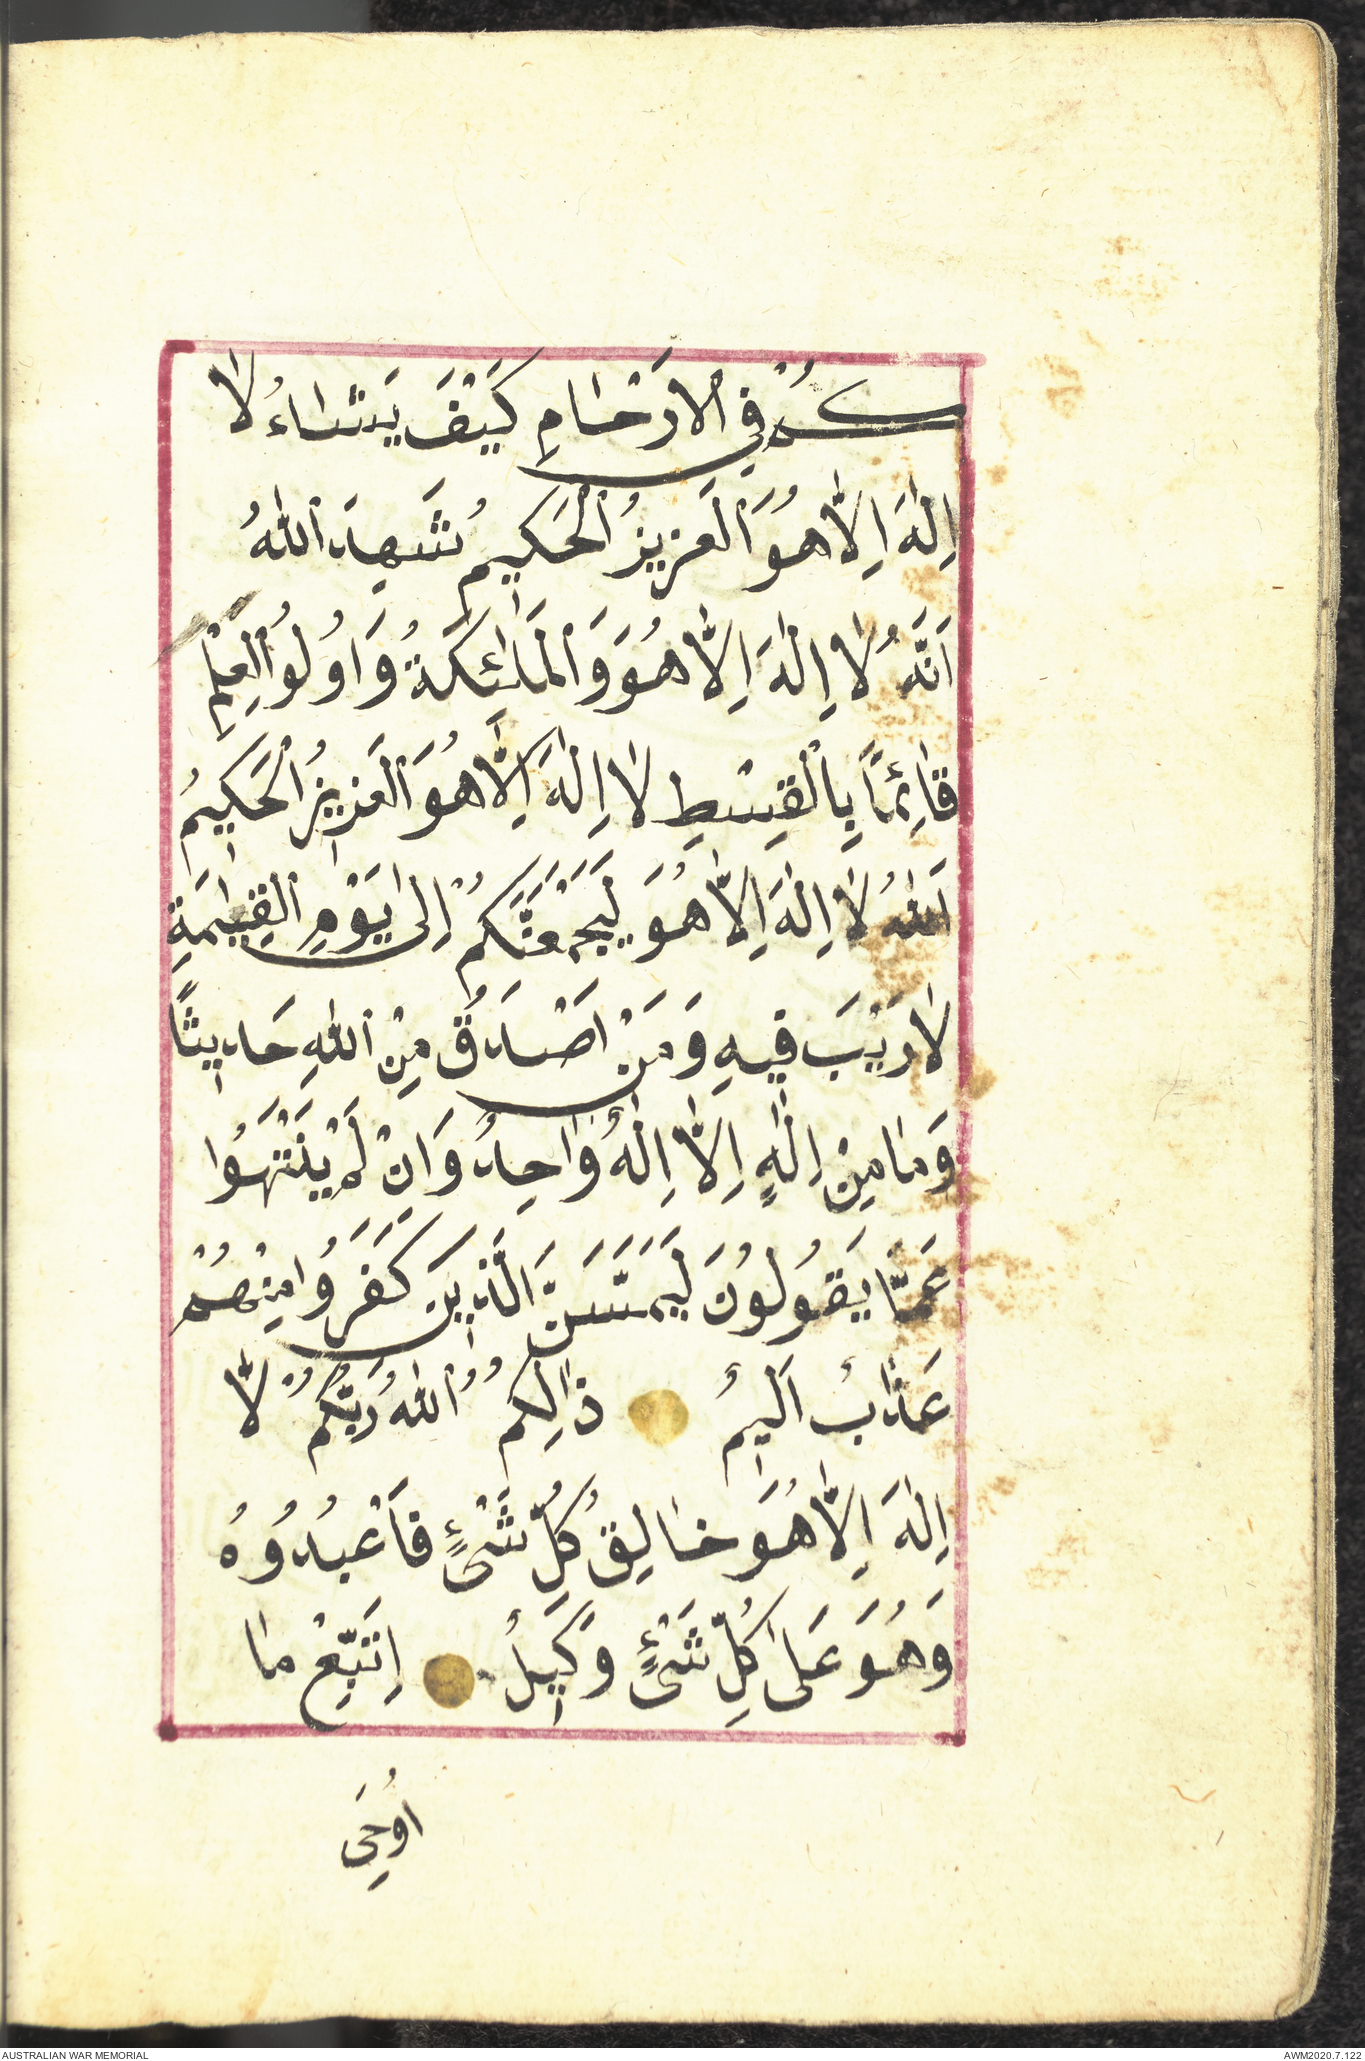 كُمْ فِي الْاَرْحَامِ كَيْفَ يَشَاءُ لَا
اِلٰهَ اِلَّا هُوَ الْعَزِيزُ الْحَكِيمُ شَهِدَ اللّٰهُ
اَنَّهُ لَا اِلٰهَ اِلَّا هُوَ وَالْمَلٰئِكَةُ وَاُولُوا الْعِلْمِ
قَائِمًا بِالْقِسْطِ لَا اِلٰهَ اِلَّا هُوَ الْعَزِيزُ الْحَكِيمُ
اَللّٰهُ لَا اِلٰهَ اِلَّا هُوَ لَيَجْمَعَنَّكُمْ اِلٰى يَوْمِ الْقِيٰمَةِ
لَا رَيْبَ فِيهِ وَمَنْ اَصْدَقُ مِنْ اللّٰهِ حَدِيثًا
وَمَا مِنْ اِلٰهٍ اِلَّا اِلٰهٌ وَاحِدٌ وَاِنْ لَمْ يَنْتَهُوا
عَمَّا يَقُولُونَ لَيَمَسَّنَّ الَّذِينَ كَفَرُوا مِنْهُمْ
عَذَابٌ اَلِيمٌ ذٰلِكُمُ اللّٰهُ رَبُّكُمْ لَا
اِلٰهَ اِلَّا هُوَ خَالِقُ كُلِّ شَيْءٍ فَاعْبُدُوهُ
وَهُوَ عَلٰى كُلِّ شَيْءٍ وَكِيلٌ اِتَّبِعْ مَا
اُوحِيَ
AUSTRALIAN WAR MEMORIAL
AWM2020.7.122